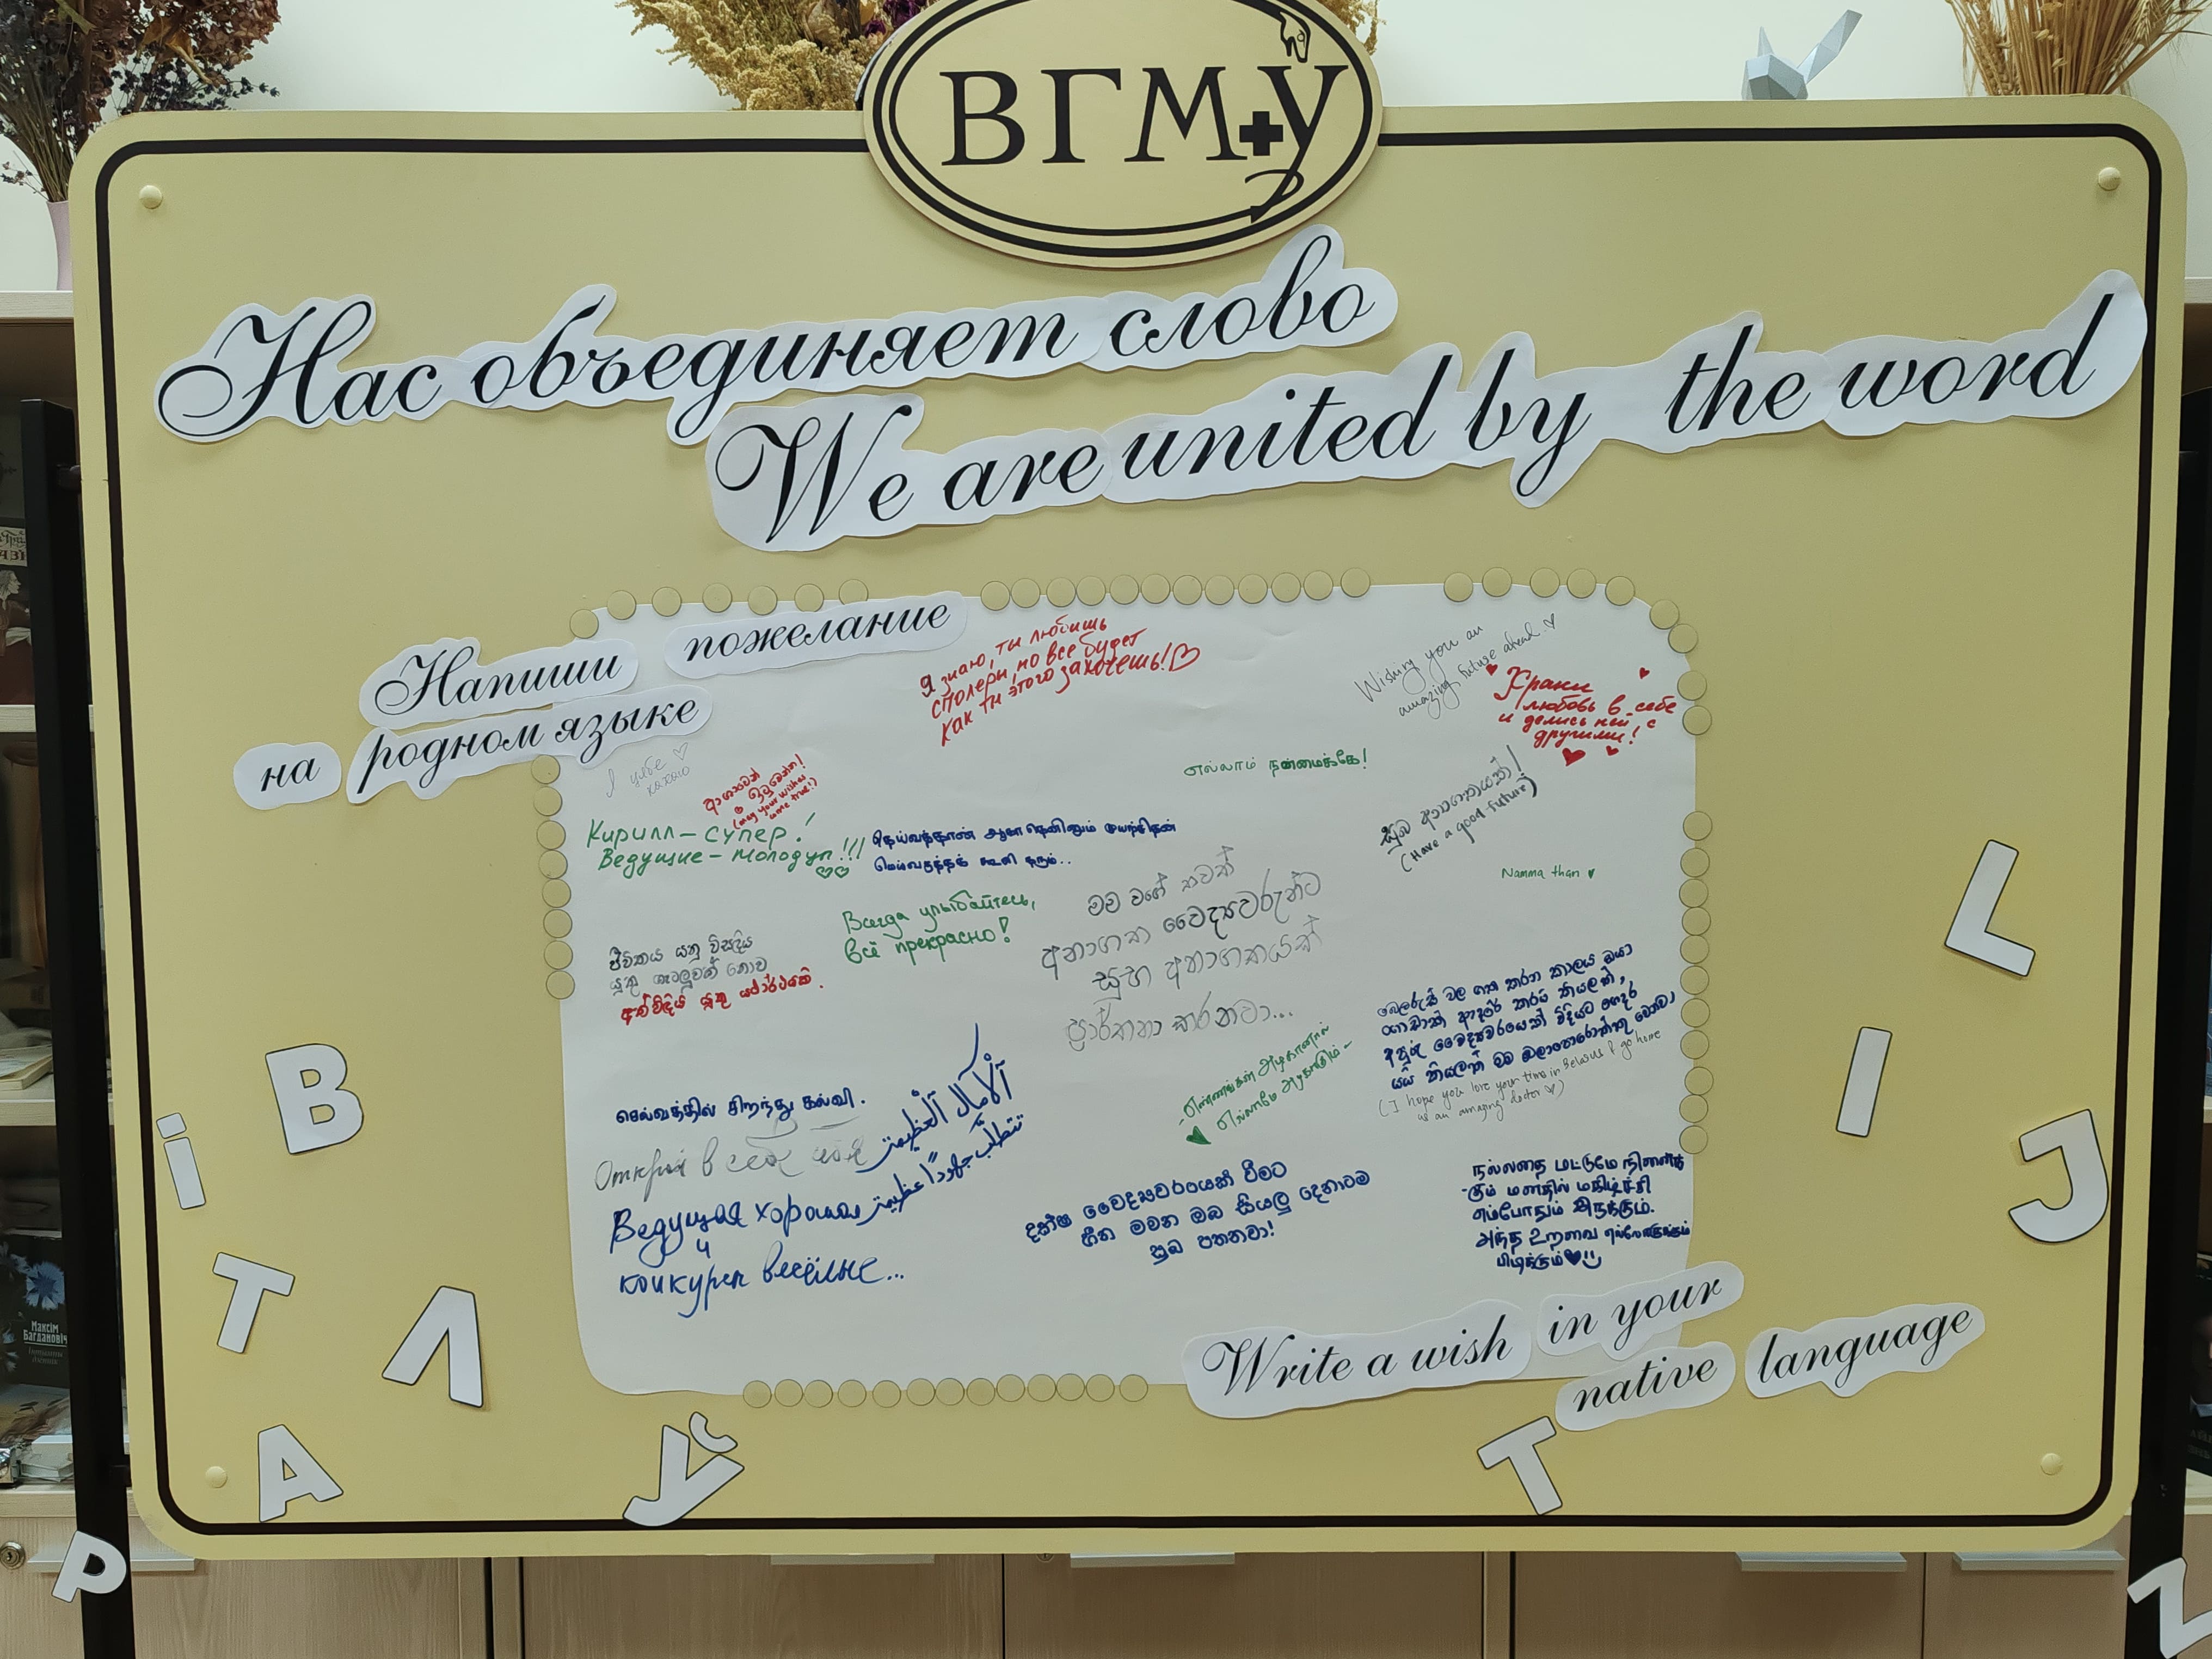 ВГМУ
Нас объединяет слово
We are united by the word
Напиши пожелание
на родном языке
Я знаю, ты любишь
сполери, но все будет
как ты этого захочешь!
Wishing you an
amazing future ahead.
Храни
любовь в себе
и делись ней с
другими!
எல்லாம் நன்மைக்கே!
ආශාවන්
ඉටුවේවා!
(may your wishes
come true!)
සුබ අනාගතයක්!
(Have a good future)
Кирилл – супер!
Ведущие – молодцы!!!
தெய்வத்தான் ஆகா தெனினும் முயற்சிதன்
மெய்வருத்தக் கூலி தரும்..
Namma than
Всегда улыбайтесь,
всё прекрасно!
මම වගේ තවත්
අනාගත වෛද්‍යවරුන්ට
සුභ අනාගතයක්
ප්‍රාර්ථනා කරනවා...
ජීවිතය යනු විසඳිය
යුතු ගැටලුවක් නොව
අත්විඳිය යුතු යථාර්ථයකි.
බෙලරුස් වල ගත කරන කාලය ඔයා
ගොඩාක් ආදරේ කරම කියලත්,
(I hope you love your time in Belarus & go home
as an amazing doctor)
எண்ணங்கள் அழகானால்
எல்லாமே அழகாகும்
செல்வத்தில் சிறந்தது கல்வி.
الآمال العظيمة
تتطلب جهودًا عظيمة
Открой в себе
Ведущая хорошая
и
конкурсы весёлые...
දක්ෂ වෛද්‍යවරයෙක් වීමට
හීන මවන ඔබ සියලු දෙනාටම
සුබ පතනවා!
நல்லதை மட்டுமே நினைக்
கும் மனதில் மகிழ்ச்சி
எப்போதும் இருக்கும்.
அந்த உறவை எல்லோருக்கும்
பிடிக்கும்
Write a wish in your
native language
L
B
I
i
J
T
Л
A
Ў
T
P
Z
Максім
Багдановіч